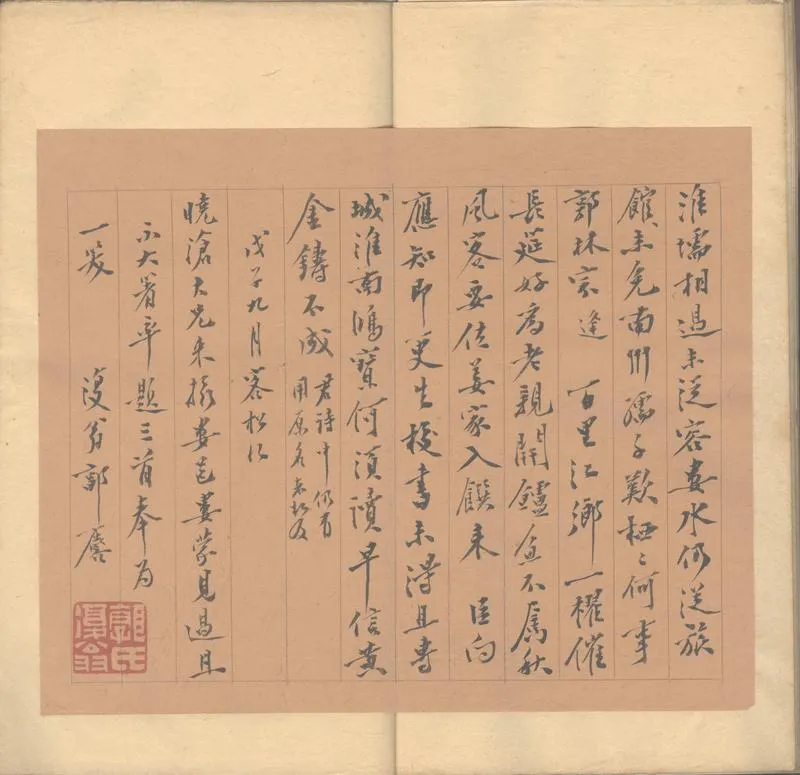 淮壖相過未從容婁水仍從旅
館未免南州孺子歎栖〻何事
郭林宗 逢 百里江鄉一櫂催
長筵好為老親開鱸魚不屬秋
風客要佐姜家入饌來 臣向
應知即更生校書未得且專
城淮南鴻寶何須讀早信黃
金鑄不成 君詩中仍有
用原名未
戊子九月客松江
曉滄大兄来攝婁邑屢蒙見過且
示大著率題三首奉為
一粲 復翁郭麐
郭氏復翁